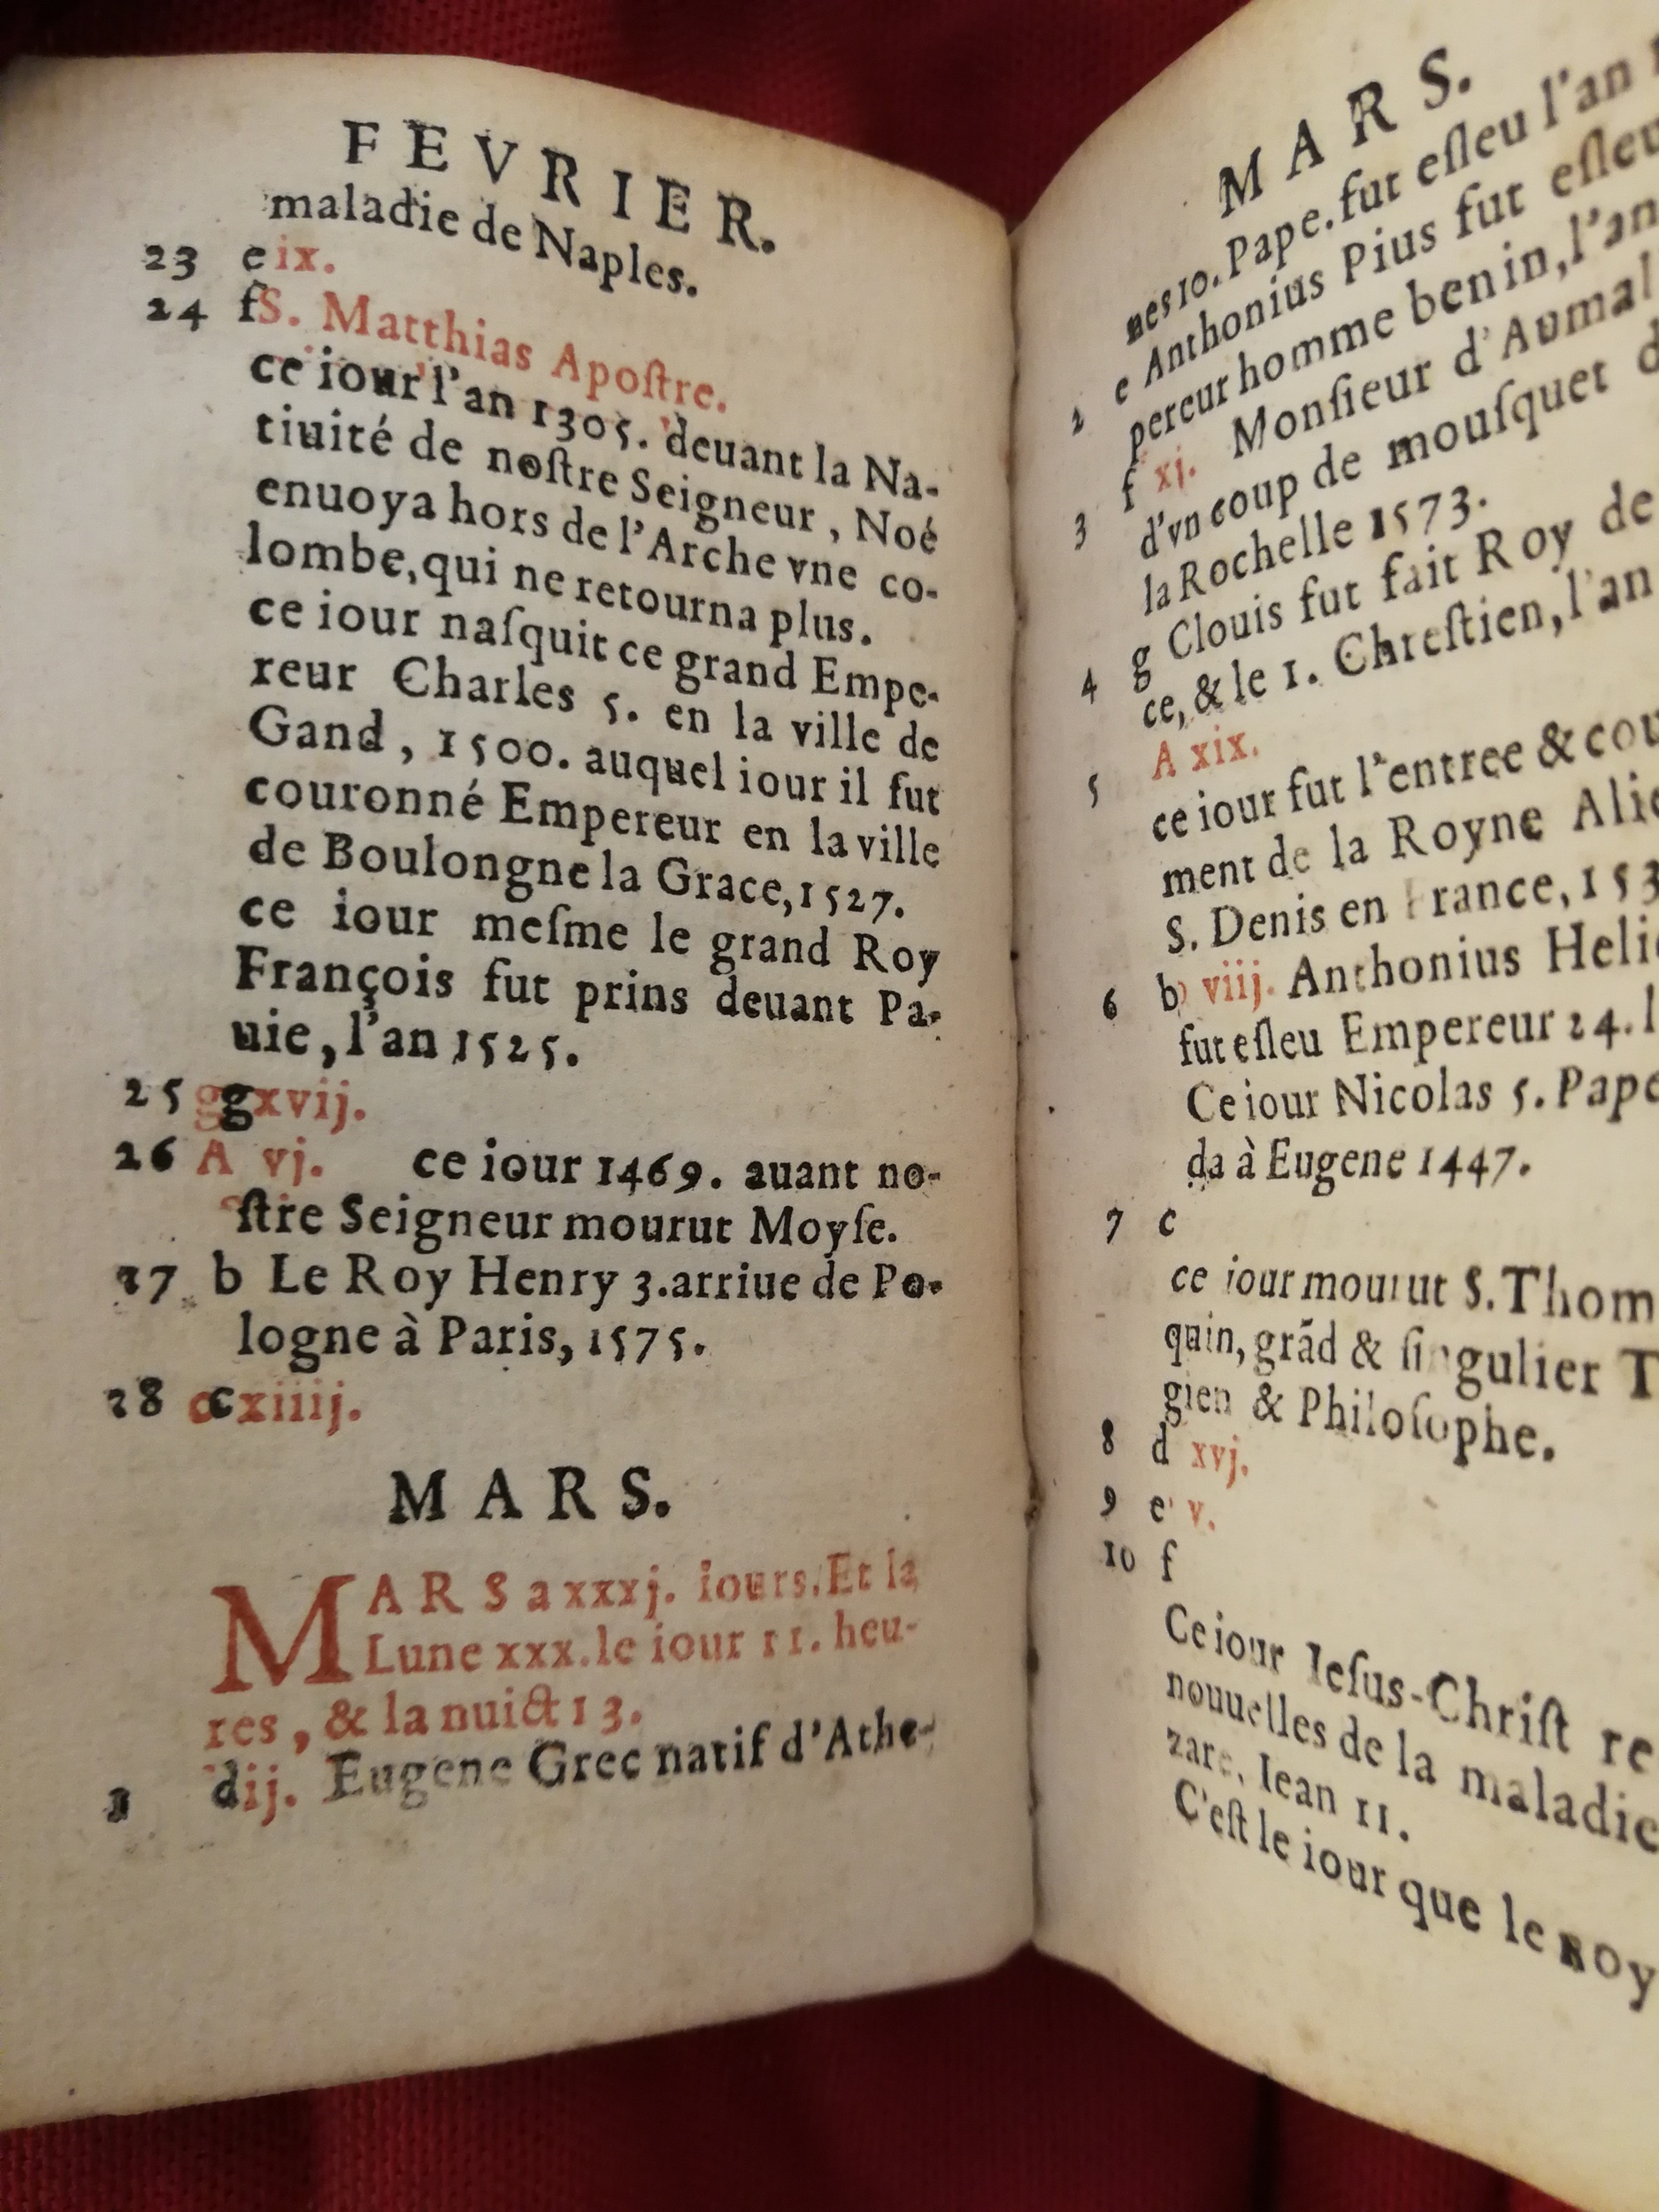 FEVRIER.
maladie de Naples.
23 e ix.
24 f S. Matthias Apoſtre.
ce iour l'an 1305. deuant la Na-
tiuité de noſtre Seigneur, Noé
enuoya hors de l'Arche vne co-
lombe, qui ne retourna plus.
ce iour naſquit ce grand Empe-
reur Charles 5. en la ville de
Gand, 1500. auquel iour il fut
couronné Empereur en la ville
de Boulongne la Grace, 1527.
ce iour meſme le grand Roy
François fut prins deuant Pa-
uie, l'an 1525.
25 g xvij.
26 A vj. ce iour 1469. auant no-
ſtre Seigneur mourut Moyſe.
27 b Le Roy Henry 3. arriue de Po-
logne à Paris, 1575.
28 c xiiij.
MARS.
MARS a xxxj. iours. Et la
Lune xxx. le iour 11. heu-
res, & la nuict 13.
d ij. Eugene Grec natif d'Athe-
MARS.
nes 10. Pape. fut eſleu l'an
2 e Anthonius Pius fut eſleu
pereur homme benin, l'an
3 f xj. Monſieur d'Aumal
d'vn coup de mouſquet
la Rochelle 1573.
4 g Clouis fut fait Roy de
ce, & le 1. Chreſtien, l'an
5 A xix.
ce iour fut l'entree & cou
ment de la Royne Alie
S. Denis en France, 153
6 b viij. Anthonius Helio
fut eſleu Empereur 24. l
Ce iour Nicolas 5. Pape
da à Eugene 1447.
7 c
ce iour mourut S. Thom
quin, grãd & ſingulier T
gien & Philoſophe.
8 d xvj.
9 e v.
10 f
Ce iour Ieſus-Chriſt re
nouuelles de la maladie
zare, Iean 11.
C'eſt le iour que le Roy